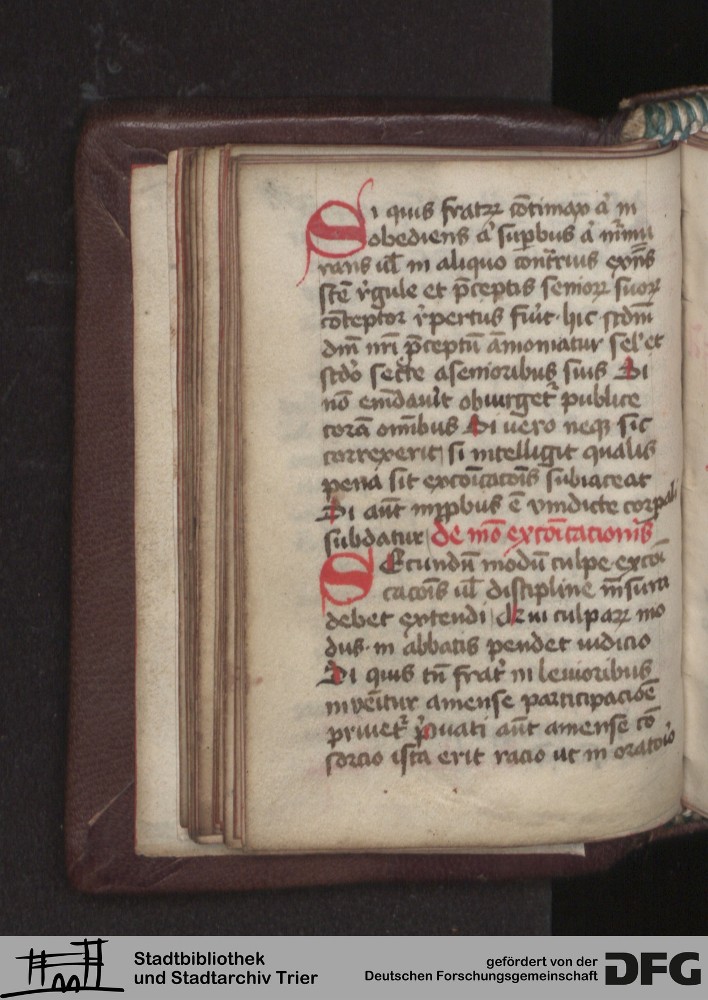 Si quis fratꝝ cōtimax aˉ in
obediens aˉ supbus aˉ mˉmu
rans ul̄ in aliquo contrˉius exn̄s
scē rˉgule et p̄ceptis senioꝝ suoꝝ
cōteptor rˉpertus fuˉit hic scdm̄
dm̄ nrī p̄ceptū āmoniatur sel et
scdo secrˉte a senioribus suis Si
nō emēdauˉit obiurgetˉ publice
corā omībus Si uero neqꝫ sic
correxerit si intelligit qualis
pena sit excōicacōis subiaceat
Si aūt inpˉbus ē vindicte corpali
subdatur de mō excōicacionis
SEcundū modū culpe excōi
cacōis ul̄ discipline mˉsura
debet extendi de ui culpaꝝ mo
dus in abbatis pendet iudicio
Si quis tn̄ fratˉ in leuioribus
inueītur a mense participacōe
priuetˉ pˉuati aūt a mense cō
sorcio ista erit racio ut in oratoˉio
Stadtbibliothek
und Stadtarchiv Trier
gefördert von der
Deutschen Forschungsgemeinschaft
DFG